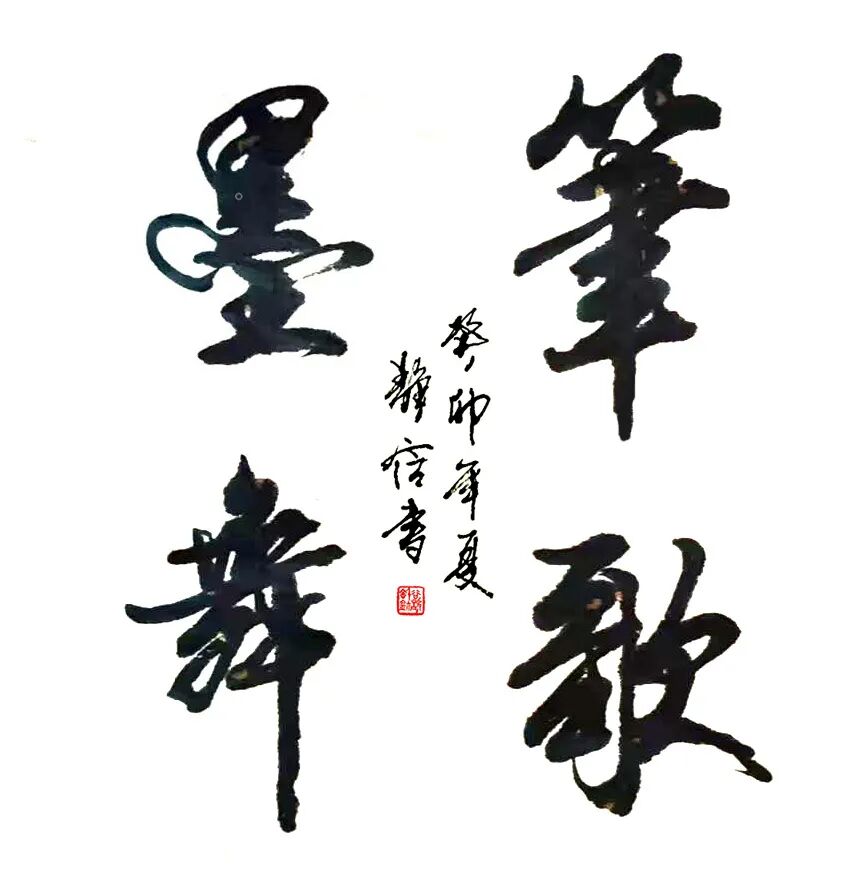 筆歌
墨舞
癸卯年夏
靜信書